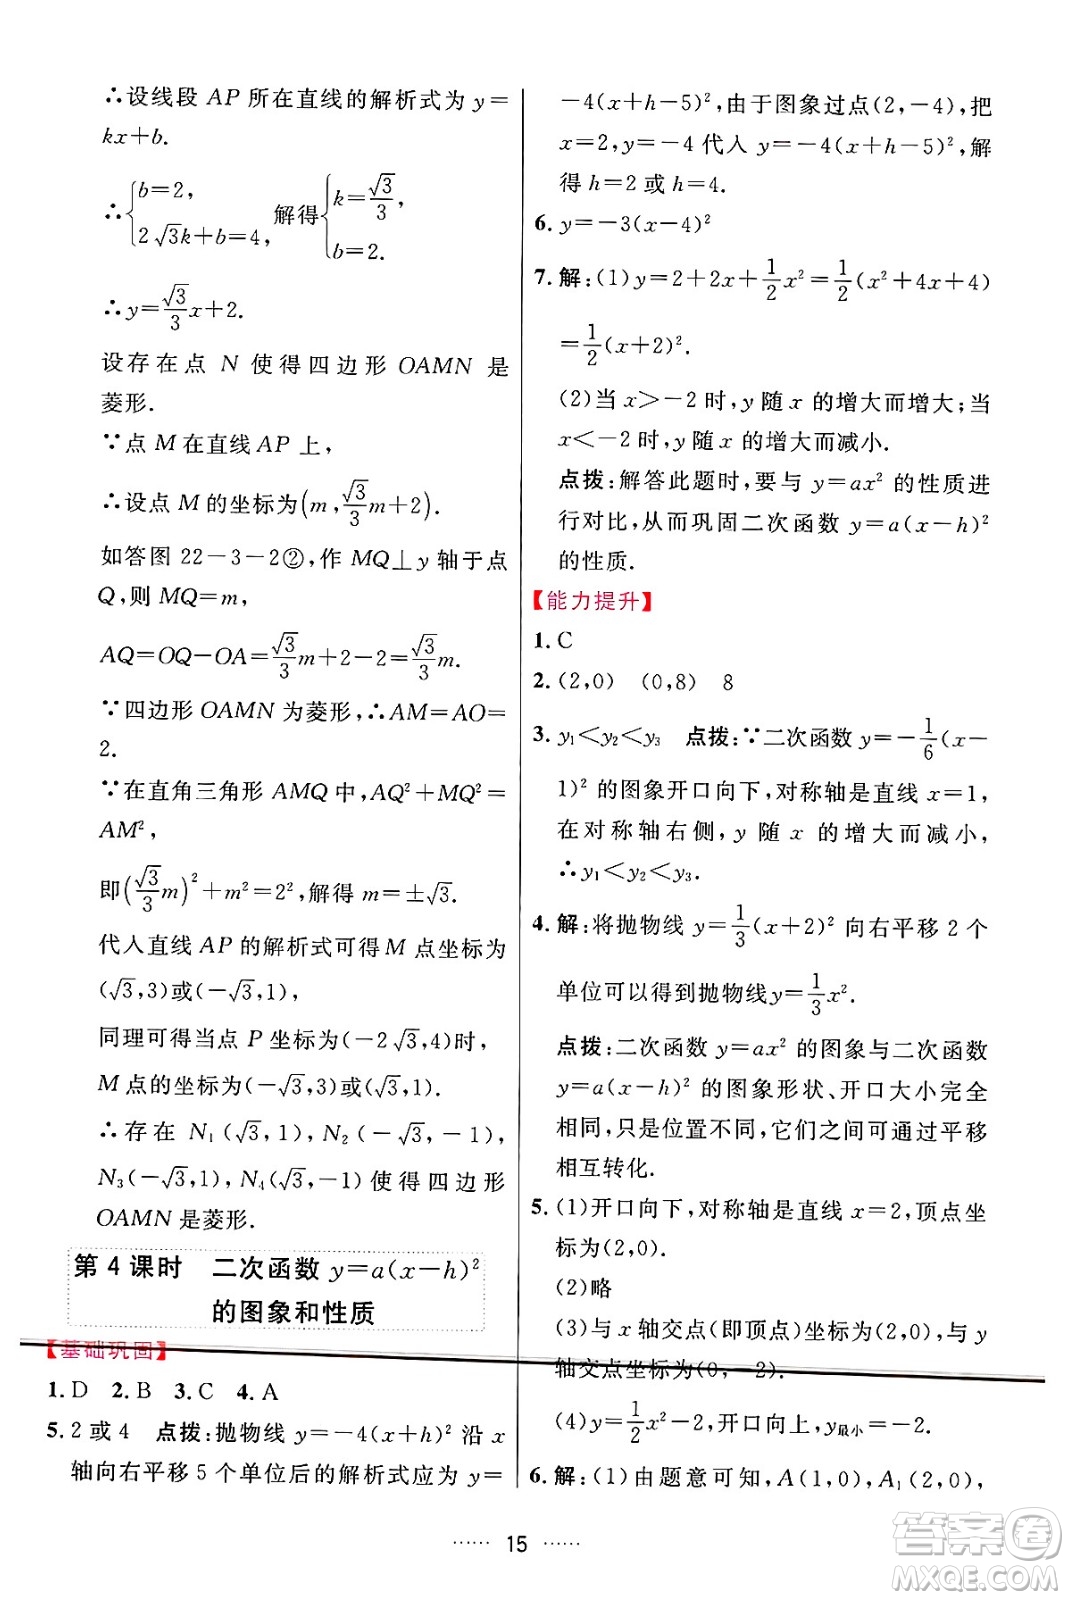 ∴设线段 AP 所在直线的解析式为 y=
kx+b.
∴{b=2, 2√3k+b=4, 解得{k=√3/3, b=2.
∴y=√3/3x+2.
设存在点 N 使得四边形 OAMN 是
菱形.
∵点 M 在直线 AP 上,
∴设点 M 的坐标为(m,√3/3m+2)
如答图 22-3-2②,作 MQ⊥y 轴于点
Q,则 MQ=m,
AQ=OQ-OA=√3/3m+2-2=√3/3m.
∵四边形 OAMN 为菱形,∴AM=AO=
2.
∵在直角三角形 AMQ 中,AQ²+MQ²=
AM²,
即(√3/3m)²+m²=2²,解得 m=±√3.
代入直线 AP 的解析式可得 M 点坐标为
(√3,3)或(-√3,1),
同理可得当点 P 坐标为(-2√3,4)时,
M 点的坐标为(-√3,3)或(√3,1).
∴存在 N₁(√3,1), N₂(-√3,-1),
N₃(-√3,1), N₄(√3,-1)使得四边形
OAMN 是菱形.
第 4 课时 二次函数 y=a(x-h)²
的图象和性质
【基础巩固】
1. D 2. B 3. C 4. A
5. 2 或 4 点拨:抛物线 y=-4(x+h)² 沿 x
轴向右平移 5 个单位后的解析式应为 y=
-4(x+h-5)²,由于图象过点(2,-4),把
x=2,y=-4 代入 y=-4(x+h-5)²,解
得 h=2 或 h=4.
6. y=-3(x-4)²
7. 解:(1)y=2+2x+1/2x²=1/2(x²+4x+4)
=1/2(x+2)².
(2)当 x>-2 时,y 随 x 的增大而增大;当
x<-2 时,y 随 x 的增大而减小.
点拨:解答此题时,要与 y=ax² 的性质进
行对比,从而巩固二次函数 y=a(x-h)²
的性质.
【能力提升】
1. C
2. (2,0) (0,8) 8
3. y₁<y₂<y₃ 点拨:∵二次函数 y=-1/6(x-
1)² 的图象开口向下,对称轴是直线 x=1,
在对称轴右侧, y 随 x 的增大而减小,
∴y₁<y₂<y₃.
4. 解:将抛物线 y=1/3(x+2)² 向右平移 2 个
单位可以得到抛物线 y=1/3x².
点拨:二次函数 y=ax² 的图象与二次函数
y=a(x-h)² 的图象形状、开口大小完全
相同,只是位置不同,它们之间可通过平移
相互转化.
5. (1)开口向下,对称轴是直线 x=2,顶点坐
标为(2,0).
(2)略
(3)与 x 轴交点(即顶点)坐标为(2,0),与 y
轴交点坐标为(0,-2).
(4)y=1/2x²-2,开口向上,y最小=-2.
6. 解:(1)由题意可知,A(1,0),A₁(2,0),
······ 15 ······
答案卷
MXQE.COM